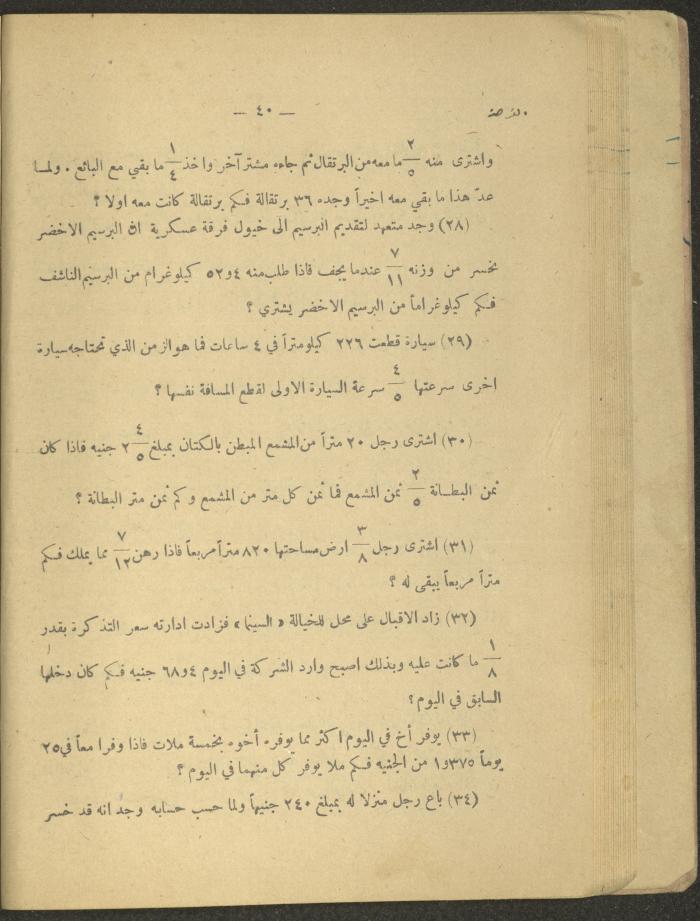 — ٤٠ —
واشترى منه ٢/٥ ما معه من البرتقال ثم جاءه مشتر آخر واخذ ١/٤ ما بقي مع البائع . ولما
عدّ هذا ما بقي معه اخيراً وجده ٣٦ برتقالة فكم برتقالة كانت معه اولا ؟
(٢٨) وجد متعهد لتقديم البرسيم الى خيول فرقة عسكرية ان البرسيم الاخضر
يخسر من وزنه ٧/١١ عندما يجف فاذا طلب منه ٥٢و٤ كيلوغرام من البرسيم الناشف
فكم كيلوغراماً من البرسيم الاخضر يشتري ؟
(٢٩) سيارة قطعت ٢٢٦ كيلومتراً في ٤ ساعات فما هو الزمن الذي تحتاجه سيارة
اخرى سرعتها ٤/٥ سرعة السيارة الاولى لقطع المسافة نفسها ؟
(٣٠) اشترى رجل ٢٠ متراً من المشمع المبطن بالكتان بمبلغ ٢ ٤/٥ جنيه فاذا كان
ثمن البطانة ٢/٥ ثمن المشمع فما ثمن كل متر من المشمع وكم ثمن متر البطانة ؟
(٣١) اشترى رجل ٣/٨ ارض مساحتها ٨٢٠ متراً مربعاً فاذا رهن ٧/١٢ مما يملك فكم
متراً مربعاً يبقى له ؟
(٣٢) زاد الاقبال على محل للخيالة «السينما» فزادت ادارته سعر التذكرة بقدر
١/٨ ما كانت عليه وبذلك اصبح وارد الشركة في اليوم ٦٨و٤ جنيه فكم كان دخلها
السابق في اليوم ؟
(٣٣) يوفر أخ في اليوم اكثر مما يوفره أخوه بخمسة ملات فاذا وفرا معاً في ٢٥
يوماً ١و٣٧٥ من الجنيه فكم ملا يوفر كل منهما في اليوم ؟
(٣٤) باع رجل منزلا له بمبلغ ٢٤٠ جنيهاً ولما حسب حسابه وجد انه قد خسر